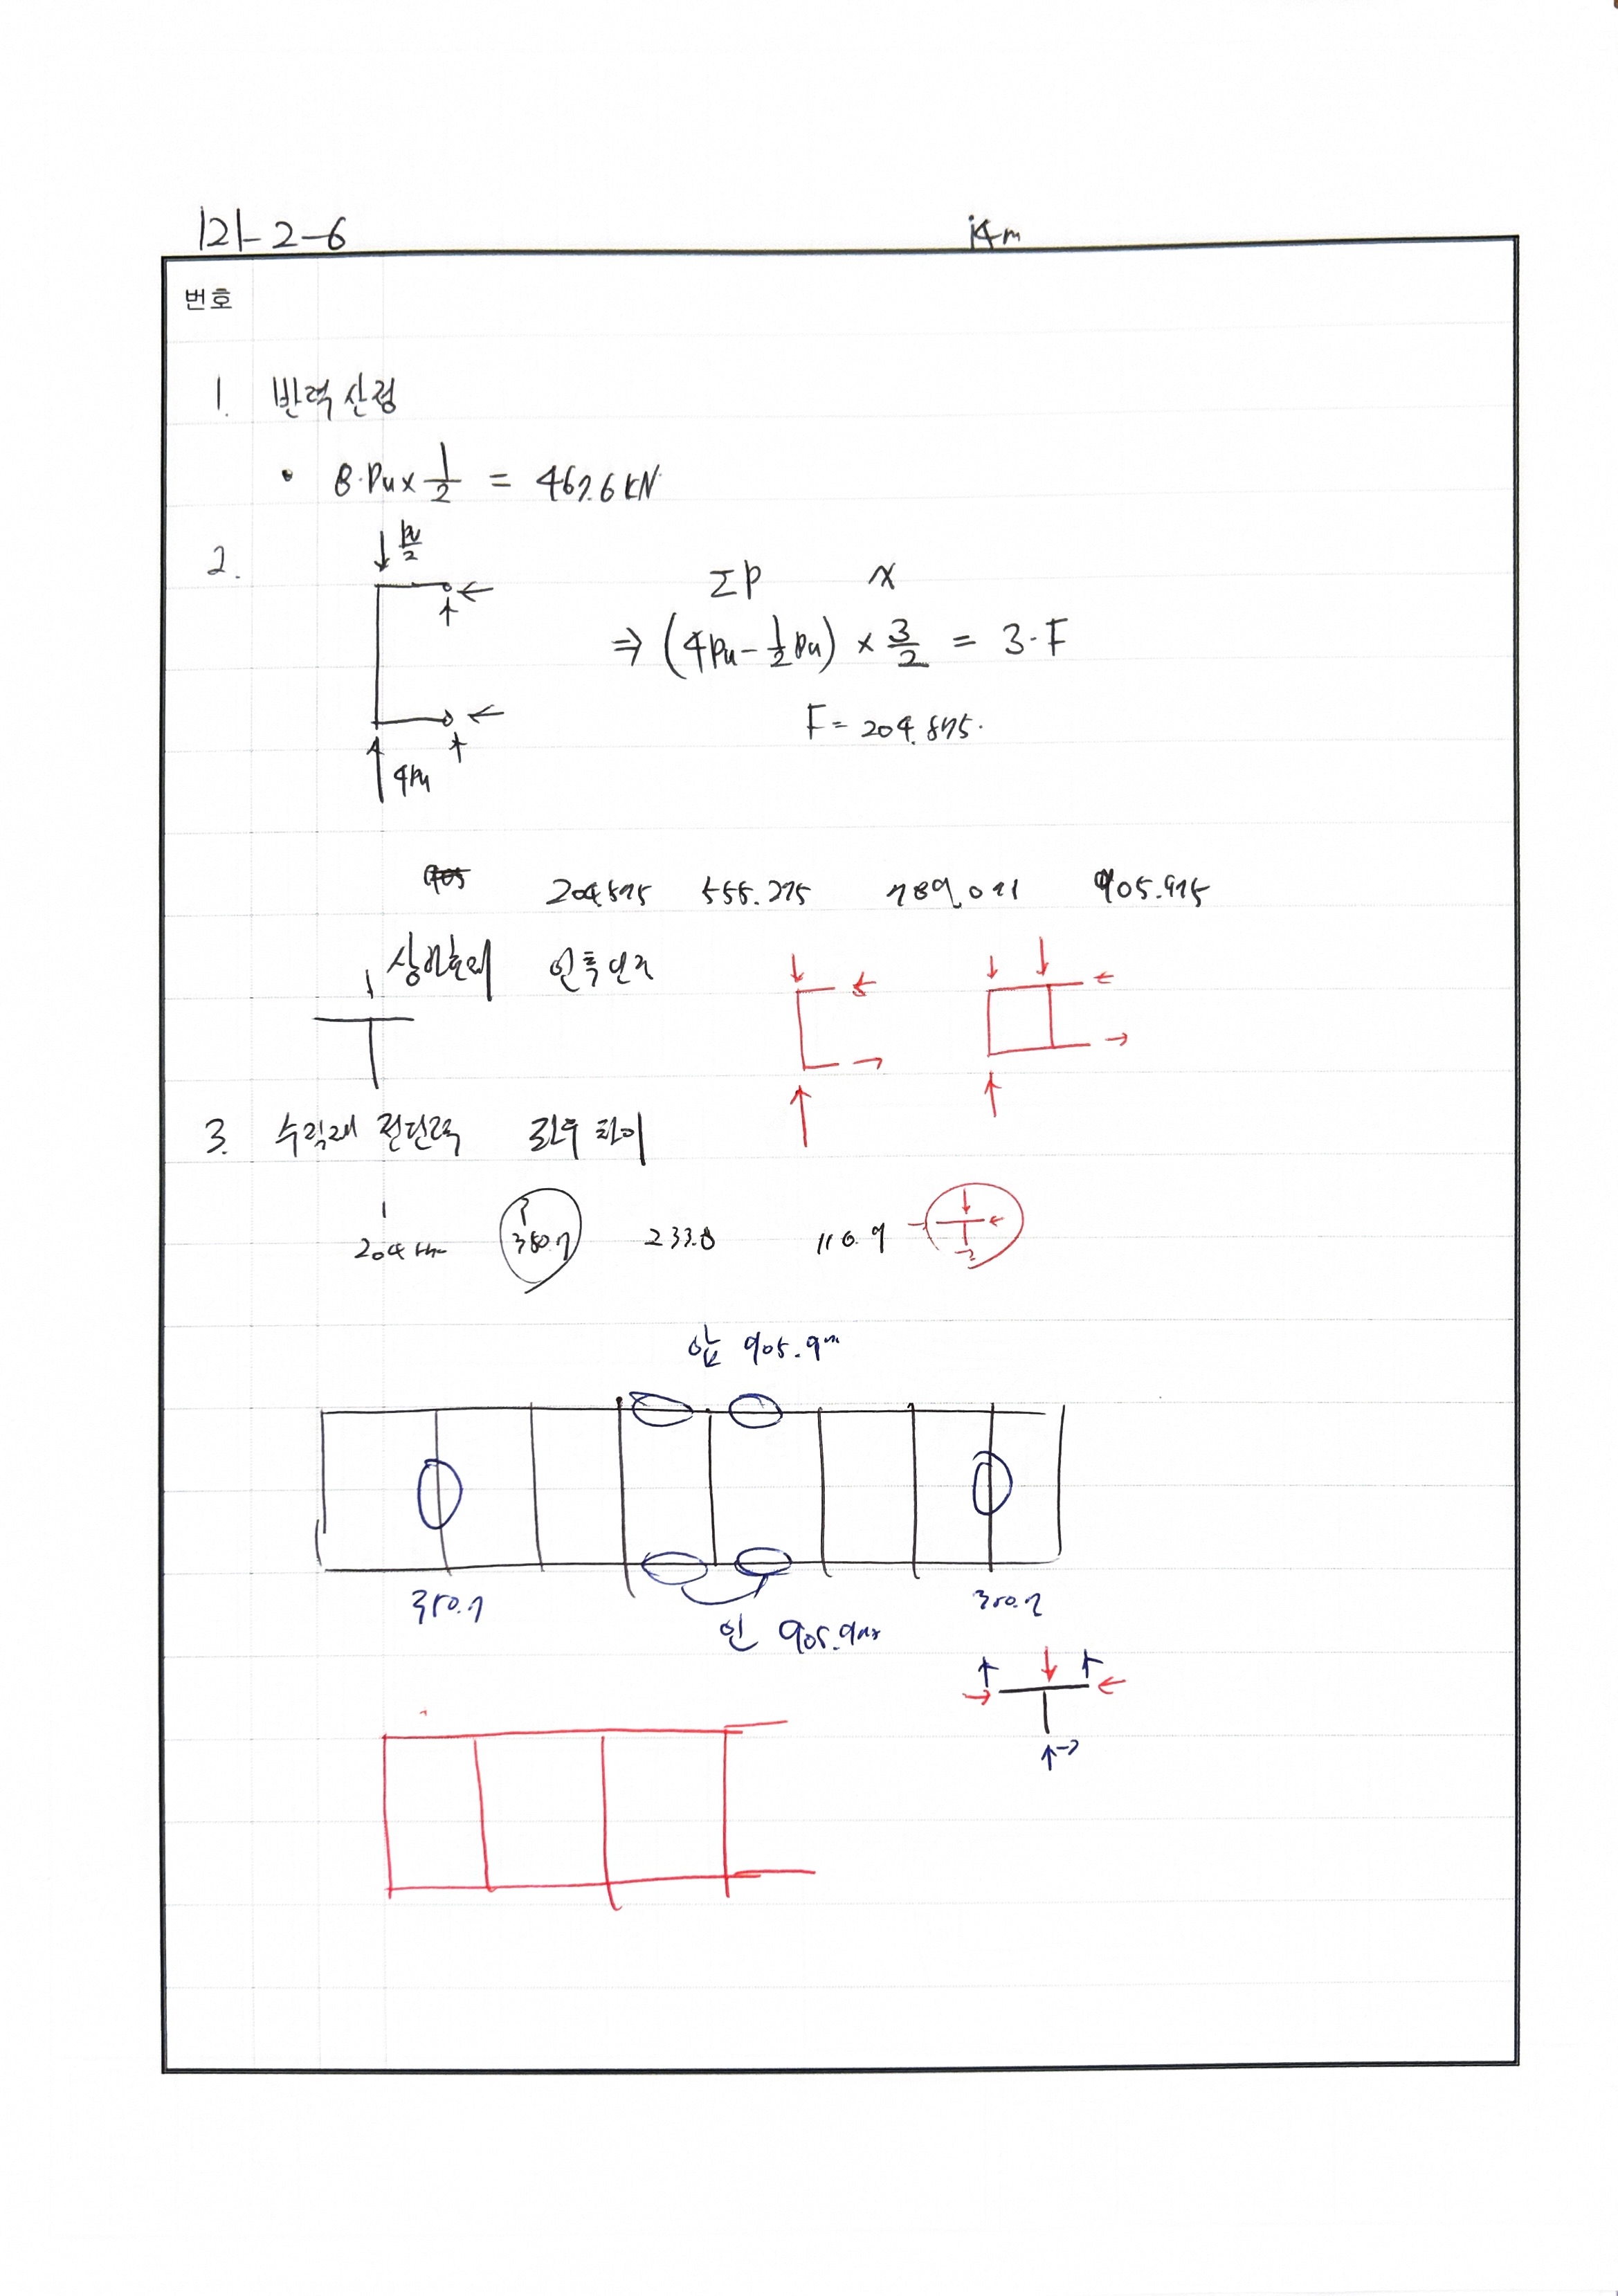 121-2-6
번호
1. 반력 산정
• 8·Pu × 1/2 = 467.6 kN
2.
↓ Pu/2
ΣP x
⇒ (4Pu - 1/2 Pu) × 3/2 = 3·F
F = 204.575.
4Pu
204.575 555.275 789.071 905.975
상하현재 인축력
3. 수직재 전단력 좌우 차이
204 350.7 233.8 116.9
압 905.9
350.7 350.7
인 905.9